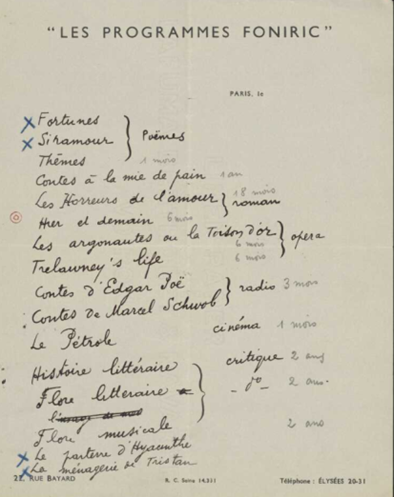 "LES PROGRAMMES FONIRIC"
PARIS, le
x Fortunes
x Siramour } Poèmes
Thèmes 1 mois
Contes à la mie de pain 1 an
Les Horreurs de l'amour } roman 18 mois
Hier et demain 6 mois
Les argonautes ou la Toison d'or } opera 6 mois
Trelawney's life 6 mois
Contes d'Edgar Poë } radio 3 mois
Contes de Marcel Schwob
Le Pétrole cinéma 1 mois
Histoire littéraire } critique 2 ans
Flore litteraire - do - 2 ans.
Flore musicale 2 ans
x Le parterre d'Hyacinthe
x La ménagerie de Tristan
22, RUE BAYARD R. C. Seine 14.311 Téléphone : ÉLYSÉES 20-31